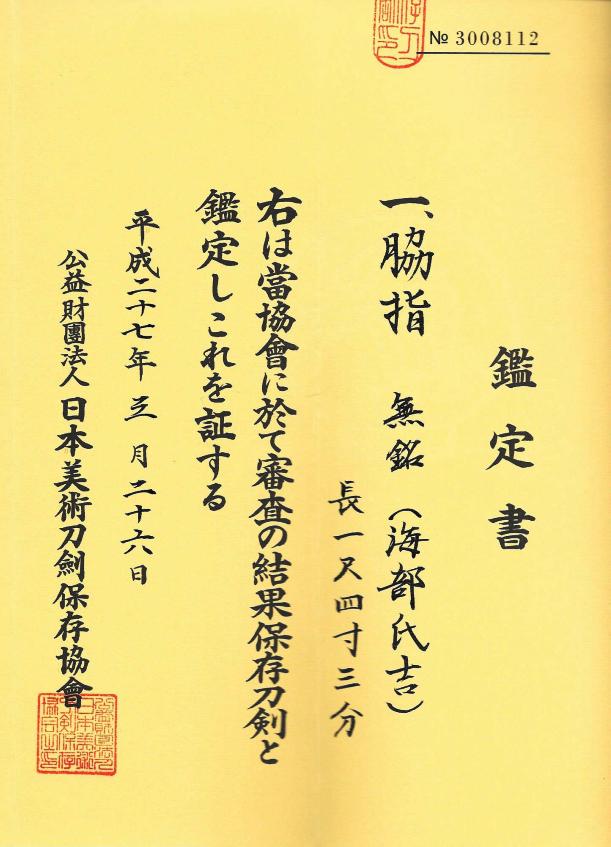 № 3008112
鑑定書
一、脇指 無銘（海部氏吉）
長一尺四寸三分
右は當協會に於て審査の結果保存刀剣と
鑑定しこれを証する
平成二十七年三月二十六日
公益財團法人日本美術刀劍保存協會